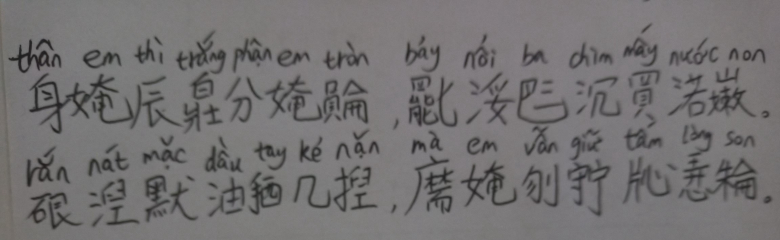 thân em thì trắng phận em tròn bảy nổi ba chìm mấy nước non
身媕辰𤽸分媕圇,𦉱浽𠀧沉買渃𡽫。
rắn nát mặc dầu tay kẻ nặn mà em vẫn giữ tấm lòng son
硍涅默油𢬣几捏,麻媕刎𡨹𤗲𢚸𣘈。